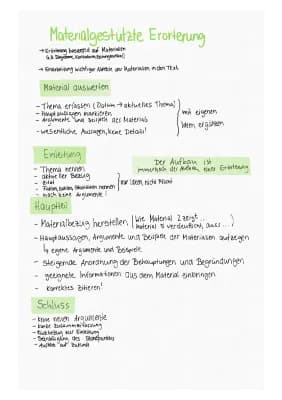 Materialgestützte Erörterung
→ Erörterung basierend auf Materialien
(z.B. Diagramm, Karikaturen, Zeitungsartikel)
→ Einarbeitung wichtiger Aspekte von Materialien in den Text
Material auswerten
- Thema erfassen (Datum → aktuelles Thema)
- Hauptaussagen markieren
- Argumente und Beispiele des Materials
- wesentliche Aussagen, keine Details!
mit eigenen
Ideen ergänzen
Einleitung
- Thema nennen
- aktueller Bezug
- Zitat
- Fakten, Zahlen, Statistiken nennen
- noch keine Argumente!
nur Ideen, nicht Pflicht
Der Aufbau ist
der Aufbau einer Erörterung
Hauptteil
- Materialbezug herstellen (Wie Material 2 zeigt...
Material 1 verdeutlicht, dass...)
- Hauptaussagen, Argumente und Beispiele der Materialien aufzeigen
↳ eigene Argumente und Beispiele
- Steigernde Anordnung der Behauptungen und Begründungen
- geeignete Informationen aus dem Material einbringen
- korrektes Zitieren!
Schluss
- keine neuen Argumente
- kurze Zusammenfassung
- Rückbezug auf Einleitung
- Bekräftigung des Standpunktes
- Ausblick auf Zukunft